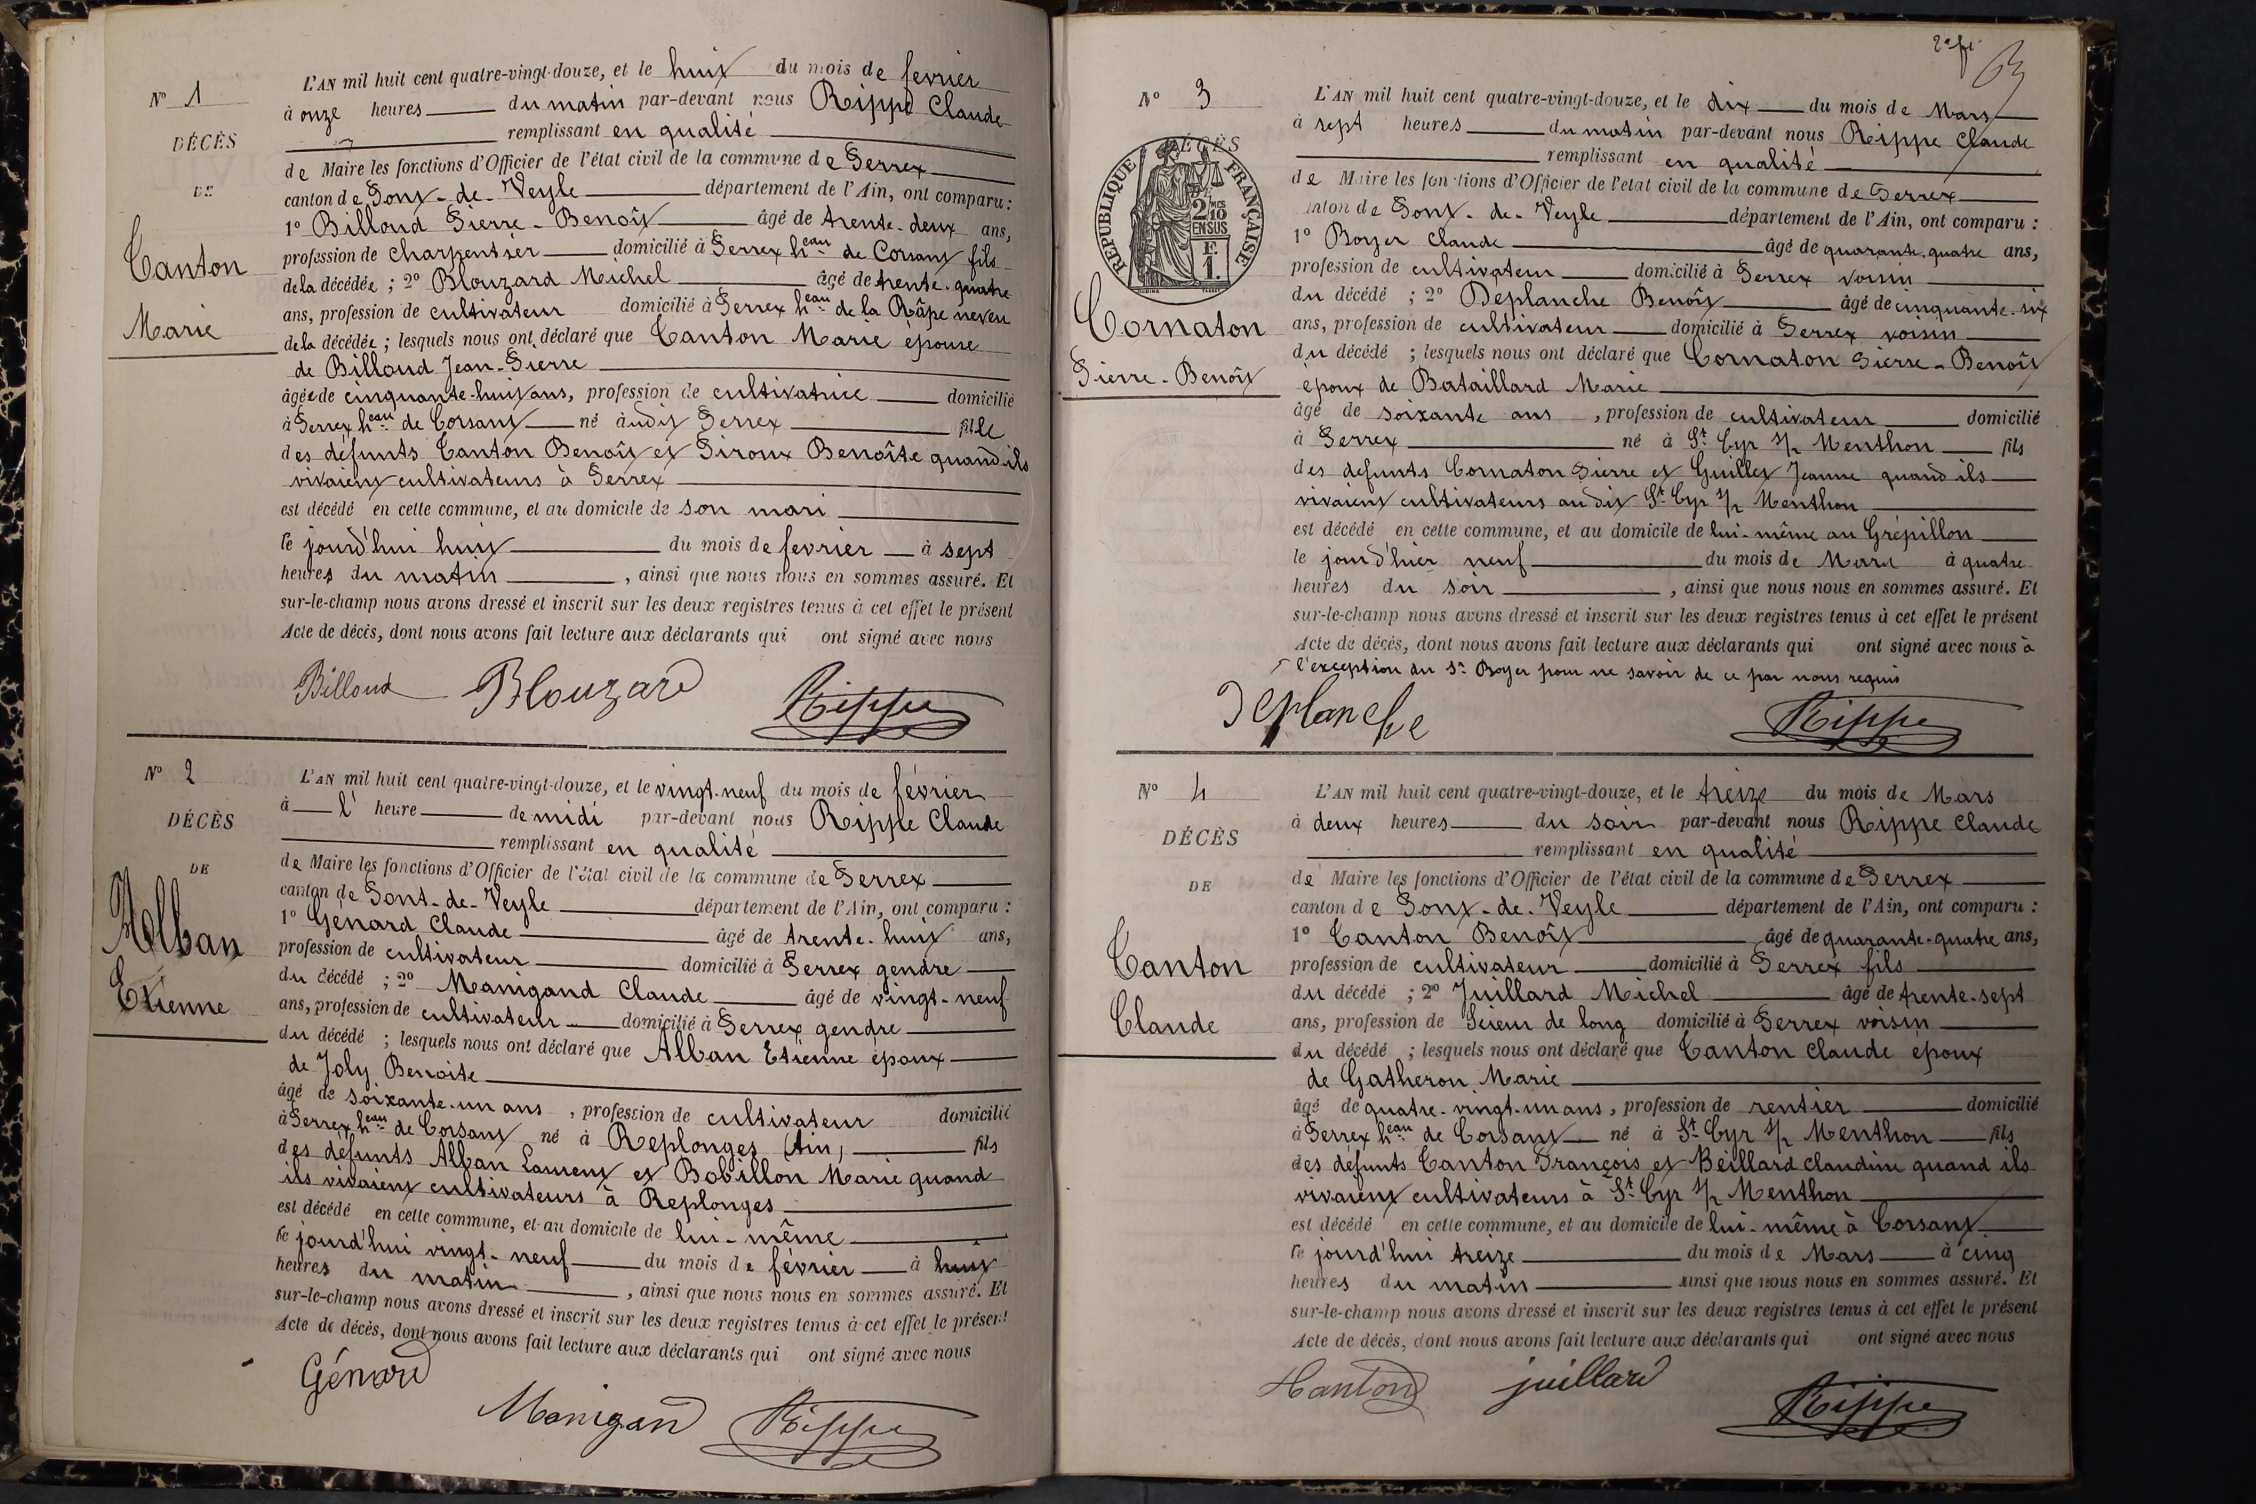 N° 1
DÉCÈS
DE
Canton
Marie
L'AN mil huit cent quatre-vingt-douze, et le huit du mois de fevrier
à onze heures du matin par-devant nous Rippe Claude
remplissant en qualité
de Maire les fonctions d'Officier de l'état civil de la commune de Perrex
canton de Pont-de-Veyle département de l'Ain, ont comparu :
1° Billoud Pierre-Benoît âgé de trente-deux ans,
profession de charpentier domicilié à Perrex heau de Corsant fils
de la décédée ; 2° Blouzard Michel âgé de trente-quatre
ans, profession de cultivateur domicilié à Perrex heau de la Râpe neveu
de la décédée ; lesquels nous ont déclaré que Canton Marie épouse
de Billoud Jean-Pierre
âgée de cinquante-huit ans, profession de cultivatrice domicilié
à Perrex heau de Corsant né audit Perrex fille
des défunts Canton Benoît et Piroux Benoîte quand ils
vivaient cultivateurs à Perrex
est décédé en cette commune, et au domicile de son mari
le jourd'hui huit du mois de fevrier à sept
heures du matin, ainsi que nous nous en sommes assuré. Et
sur-le-champ nous avons dressé et inscrit sur les deux registres tenus à cet effet le présent
Acte de décès, dont nous avons fait lecture aux déclarants qui ont signé avec nous
Billoud Blouzard Rippe
N° 2
DÉCÈS
DE
Alban
Etienne
L'AN mil huit cent quatre-vingt-douze, et le vingt-neuf du mois de février
à l' heure de midi par-devant nous Rippe Claude
remplissant en qualité
de Maire les fonctions d'Officier de l'état civil de la commune de Perrex
canton de Pont-de-Veyle département de l'Ain, ont comparu :
1° Génard Claude âgé de trente-huit ans,
profession de cultivateur domicilié à Perrex gendre
du décédé ; 2° Manigand Claude âgé de vingt-neuf
ans, profession de cultivateur domicilié à Perrex gendre
du décédé ; lesquels nous ont déclaré que Alban Etienne époux
de Joly Benoite
âgé de soixante-un ans, profession de cultivateur domicilié
à Perrex heau de Corsant né à Replonges (Ain) fils
des défunts Alban Laurent et Bobillon Marie quand
ils vivaient cultivateurs à Replonges
est décédé en cette commune, et au domicile de lui-même
le jourd'hui vingt-neuf du mois de février à huit
heures du matin, ainsi que nous nous en sommes assuré. Et
sur-le-champ nous avons dressé et inscrit sur les deux registres tenus à cet effet le présent
Acte de décès, dont nous avons fait lecture aux déclarants qui ont signé avec nous
Génard
Manigand Rippe
N° 3
DÉCÈS
RÉPUBLIQUE FRANÇAISE
2/10 MES
EN SUS
F.
1.
Cornaton
Pierre-Benoît
L'AN mil huit cent quatre-vingt-douze, et le dix du mois de Mars
à sept heures du matin par-devant nous Rippe Claude
remplissant en qualité
de Maire les fonctions d'Officier de l'état civil de la commune de Perrex
canton de Pont-de-Veyle département de l'Ain, ont comparu :
1° Boyer Claude âgé de quarante-quatre ans,
profession de cultivateur domicilié à Perrex voisin
du décédé ; 2° Deplanche Benoît âgé de cinquante-six
ans, profession de cultivateur domicilié à Perrex voisin
du décédé ; lesquels nous ont déclaré que Cornaton Pierre-Benoît
époux de Bataillard Marie
âgé de soixante ans, profession de cultivateur domicilié
à Perrex né à St Cyr s/r Menthon fils
des défunts Cornaton Pierre et Guillet Jeanne quand ils
vivaient cultivateurs audit St Cyr s/r Menthon
est décédé en cette commune, et au domicile de lui-même au Grépillon
le jourd'hier neuf du mois de Mars à quatre
heures du soir, ainsi que nous nous en sommes assuré. Et
sur-le-champ nous avons dressé et inscrit sur les deux registres tenus à cet effet le présent
Acte de décès, dont nous avons fait lecture aux déclarants qui ont signé avec nous à
l'exception du Sr Boyer pour ne savoir de ce par nous requis
Deplanche Rippe
N° 4
DÉCÈS
DE
Canton
Claude
L'AN mil huit cent quatre-vingt-douze, et le treize du mois de Mars
à deux heures du soir par-devant nous Rippe Claude
remplissant en qualité
de Maire les fonctions d'Officier de l'état civil de la commune de Perrex
canton de Pont-de-Veyle département de l'Ain, ont comparu :
1° Canton Benoît âgé de quarante-quatre ans,
profession de cultivateur domicilié à Perrex fils
du décédé ; 2° Juillard Michel âgé de trente-sept
ans, profession de Scieur de long domicilié à Perrex voisin
du décédé ; lesquels nous ont déclaré que Canton Claude époux
de Gatheron Marie
âgé de quatre-vingt-un ans, profession de rentier domicilié
à Perrex heau de Corsant né à St Cyr s/r Menthon fils
des défunts Canton François et Beillard Claudine quand ils
vivaient cultivateurs à St Cyr s/r Menthon
est décédé en cette commune, et au domicile de lui-même à Corsant
le jourd'hui treize du mois de Mars à cinq
heures du matin ainsi que nous nous en sommes assuré. Et
sur-le-champ nous avons dressé et inscrit sur les deux registres tenus à cet effet le présent
Acte de décès, dont nous avons fait lecture aux déclarants qui ont signé avec nous
Canton juillard Rippe